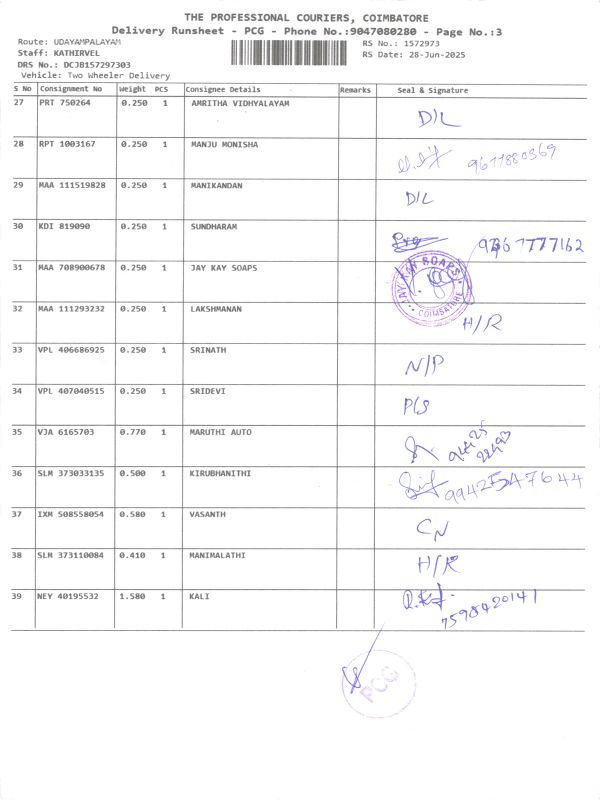 THE PROFESSIONAL COURIERS, COIMBATORE
Delivery Runsheet - PCG - Phone No.:9047080280 - Page No.:3
Route: UDAYAMPALAYAM RS No.: 1572973
Staff: KATHIRVEL RS Date: 28-Jun-2025
DRS No.: DCJ8157297303
Vehicle: Two Wheeler Delivery
S No Consignment No Weight PCS Consignee Details Remarks Seal & Signature
27 PRT 750264 0.250 1 AMRITHA VIDHYALAYAM D/L
28 RPT 1003167 0.250 1 MANJU MONISHA 9677880369
29 MAA 111519828 0.250 1 MANIKANDAN D/L
30 KDI 819090 0.250 1 SUNDHARAM
31 MAA 708900678 0.250 1 JAY KAY SOAPS JAY KAY SOAPS COIMBATORE
32 MAA 111293232 0.250 1 LAKSHMANAN H/R
33 VPL 406686925 0.250 1 SRINATH N/P
34 VPL 407040515 0.250 1 SRIDEVI P/S
35 VJA 6165703 0.770 1 MARUTHI AUTO
36 SLM 373033135 0.500 1 KIRUBHANITHI 9942547644
37 IXM 508558054 0.580 1 VASANTH CN
38 SLM 373110084 0.410 1 MANIMALATHI H/R
39 NEY 40195532 1.580 1 KALI 7598420141
PCG